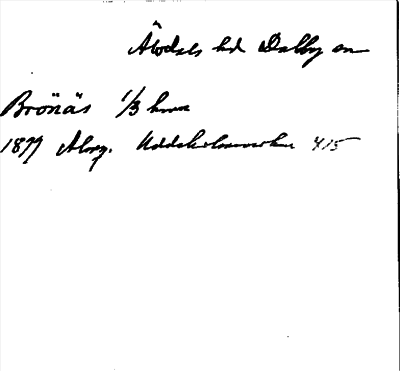 Älvdals hd Dalby sn
Brönäs 1/3 hmn
1877 Abrg. Uddeholmsverken 415